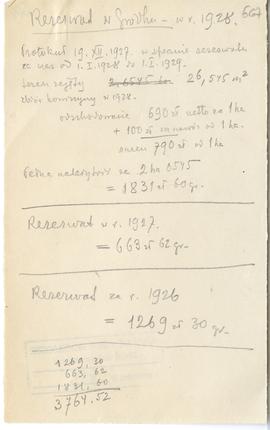 Rezerwat w Gródku - w r. 1928.
567
Protokuł 19. XII. 1927. w sprawie rezerwatu
za czas od 1. I. 1928 do 1. I. 1929.
teren zajęty 2,6545 ha 26,545 m²
zbiór komisyjny w 1928.
odszkodowanie 690 zł netto za 1 ha
+ 100 zł za nawóz od 1 ha.
razem 790 zł od 1 ha
Pełna należytość za 2 ha 6545
= 1831 zł 60 gr.
Rezerwat w r. 1927.
= 663 zł 62 gr.
Rezerwat za r. 1926
= 1269 zł 30 gr.
1269, 30
663, 62
1831, 60
3764.52